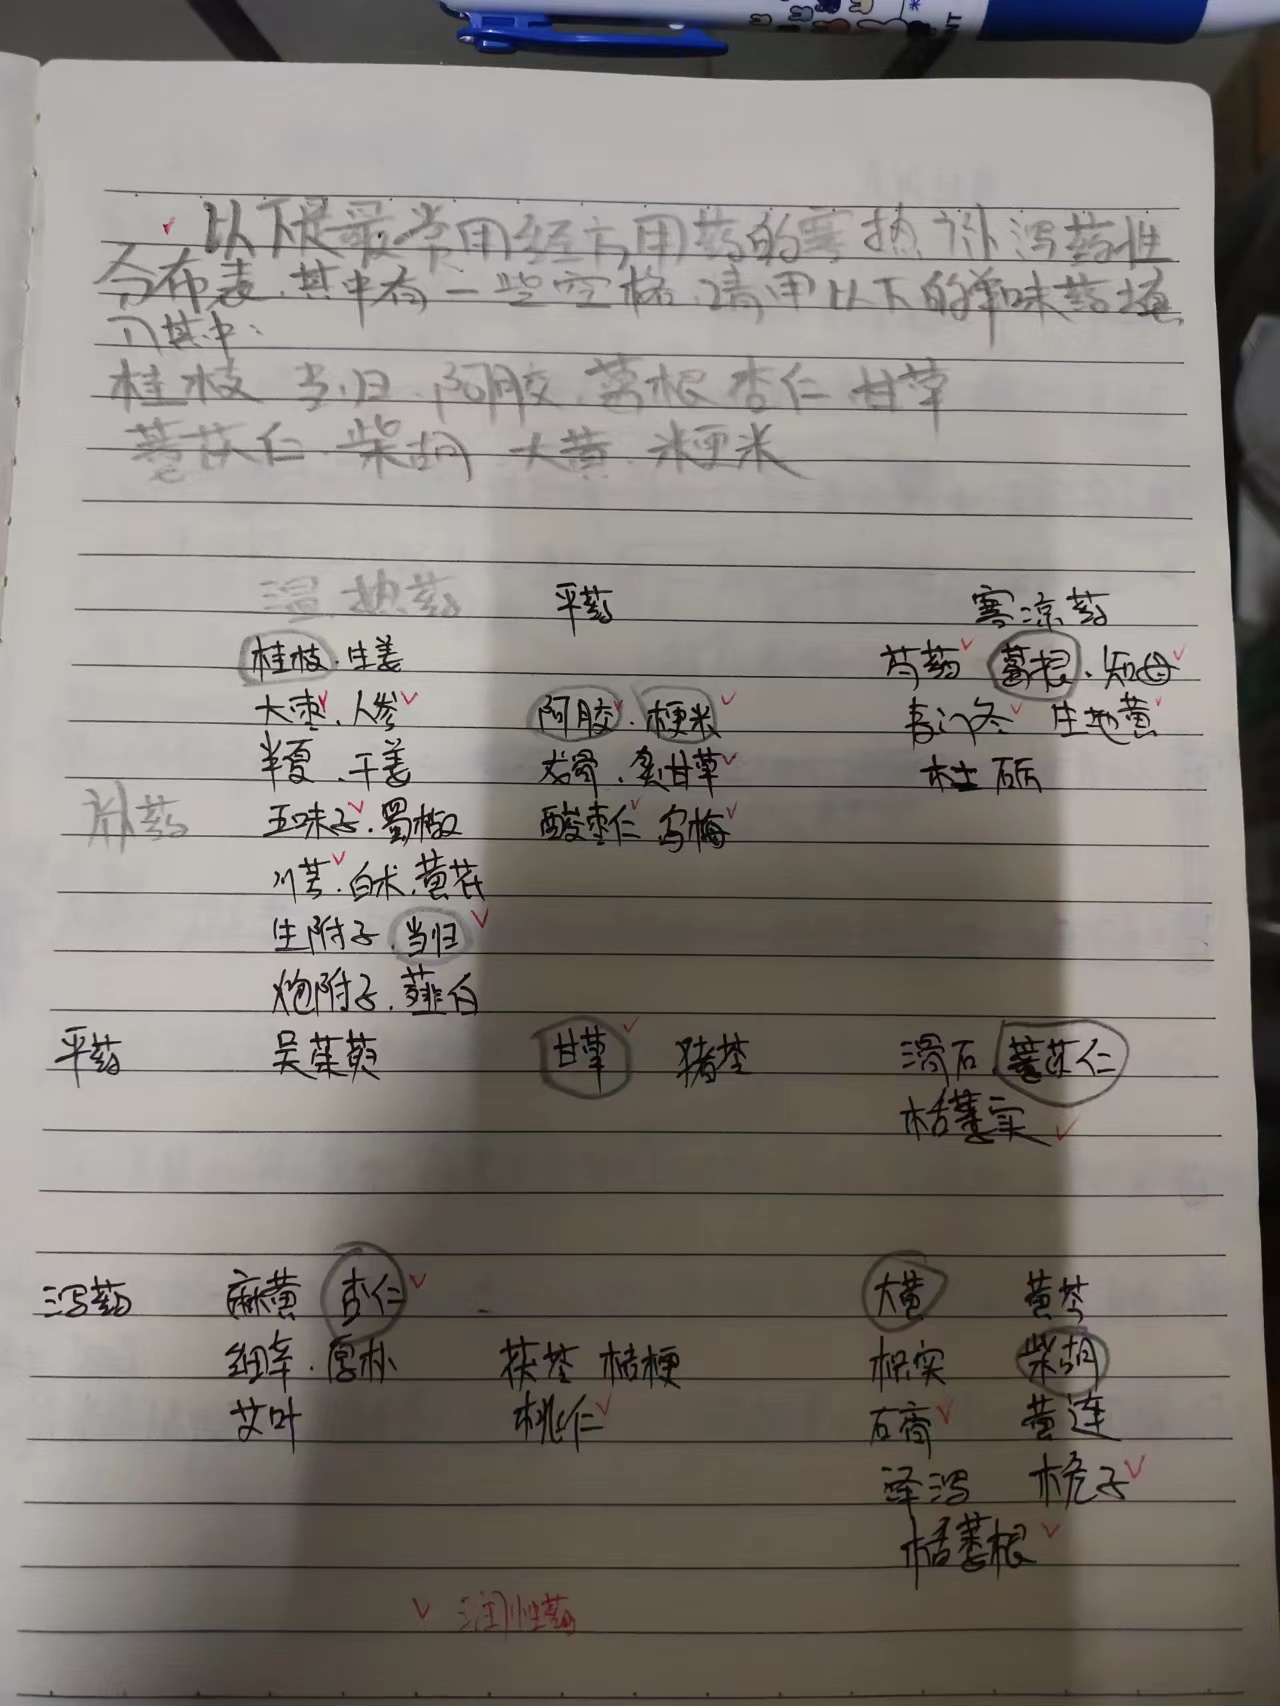 ✓ 以下是最常用经方用药的寒热补泻药性
分布表,其中有一些空格,请用以下的单味药填
入其中:
桂枝 当归 阿胶 葛根 杏仁 甘草
薏苡仁 柴胡 大黄 粳米
温热药 平药 寒凉药
桂枝·生姜 芍药✓ 葛根·知母✓
大枣✓·人参✓ 阿胶✓·粳米✓ 麦门冬✓ 生地黄✓
半夏·干姜 龙骨·炙甘草✓ 牡砺
补药 五味子✓·蜀椒 酸枣仁✓ 乌梅✓
川芎✓·白术·黄芪
生附子·当归✓
炮附子·薤白
平药 吴茱萸 甘草✓ 猪苓 滑石·薏苡仁
栝蒌实✓
泻药 麻黄 杏仁✓ 大黄 黄芩
细辛·厚朴 茯苓 桔梗 枳实 柴胡
艾叶 桃仁✓ 石膏✓ 黄连
泽泻 栀子✓
栝蒌根✓
✓ 润性药